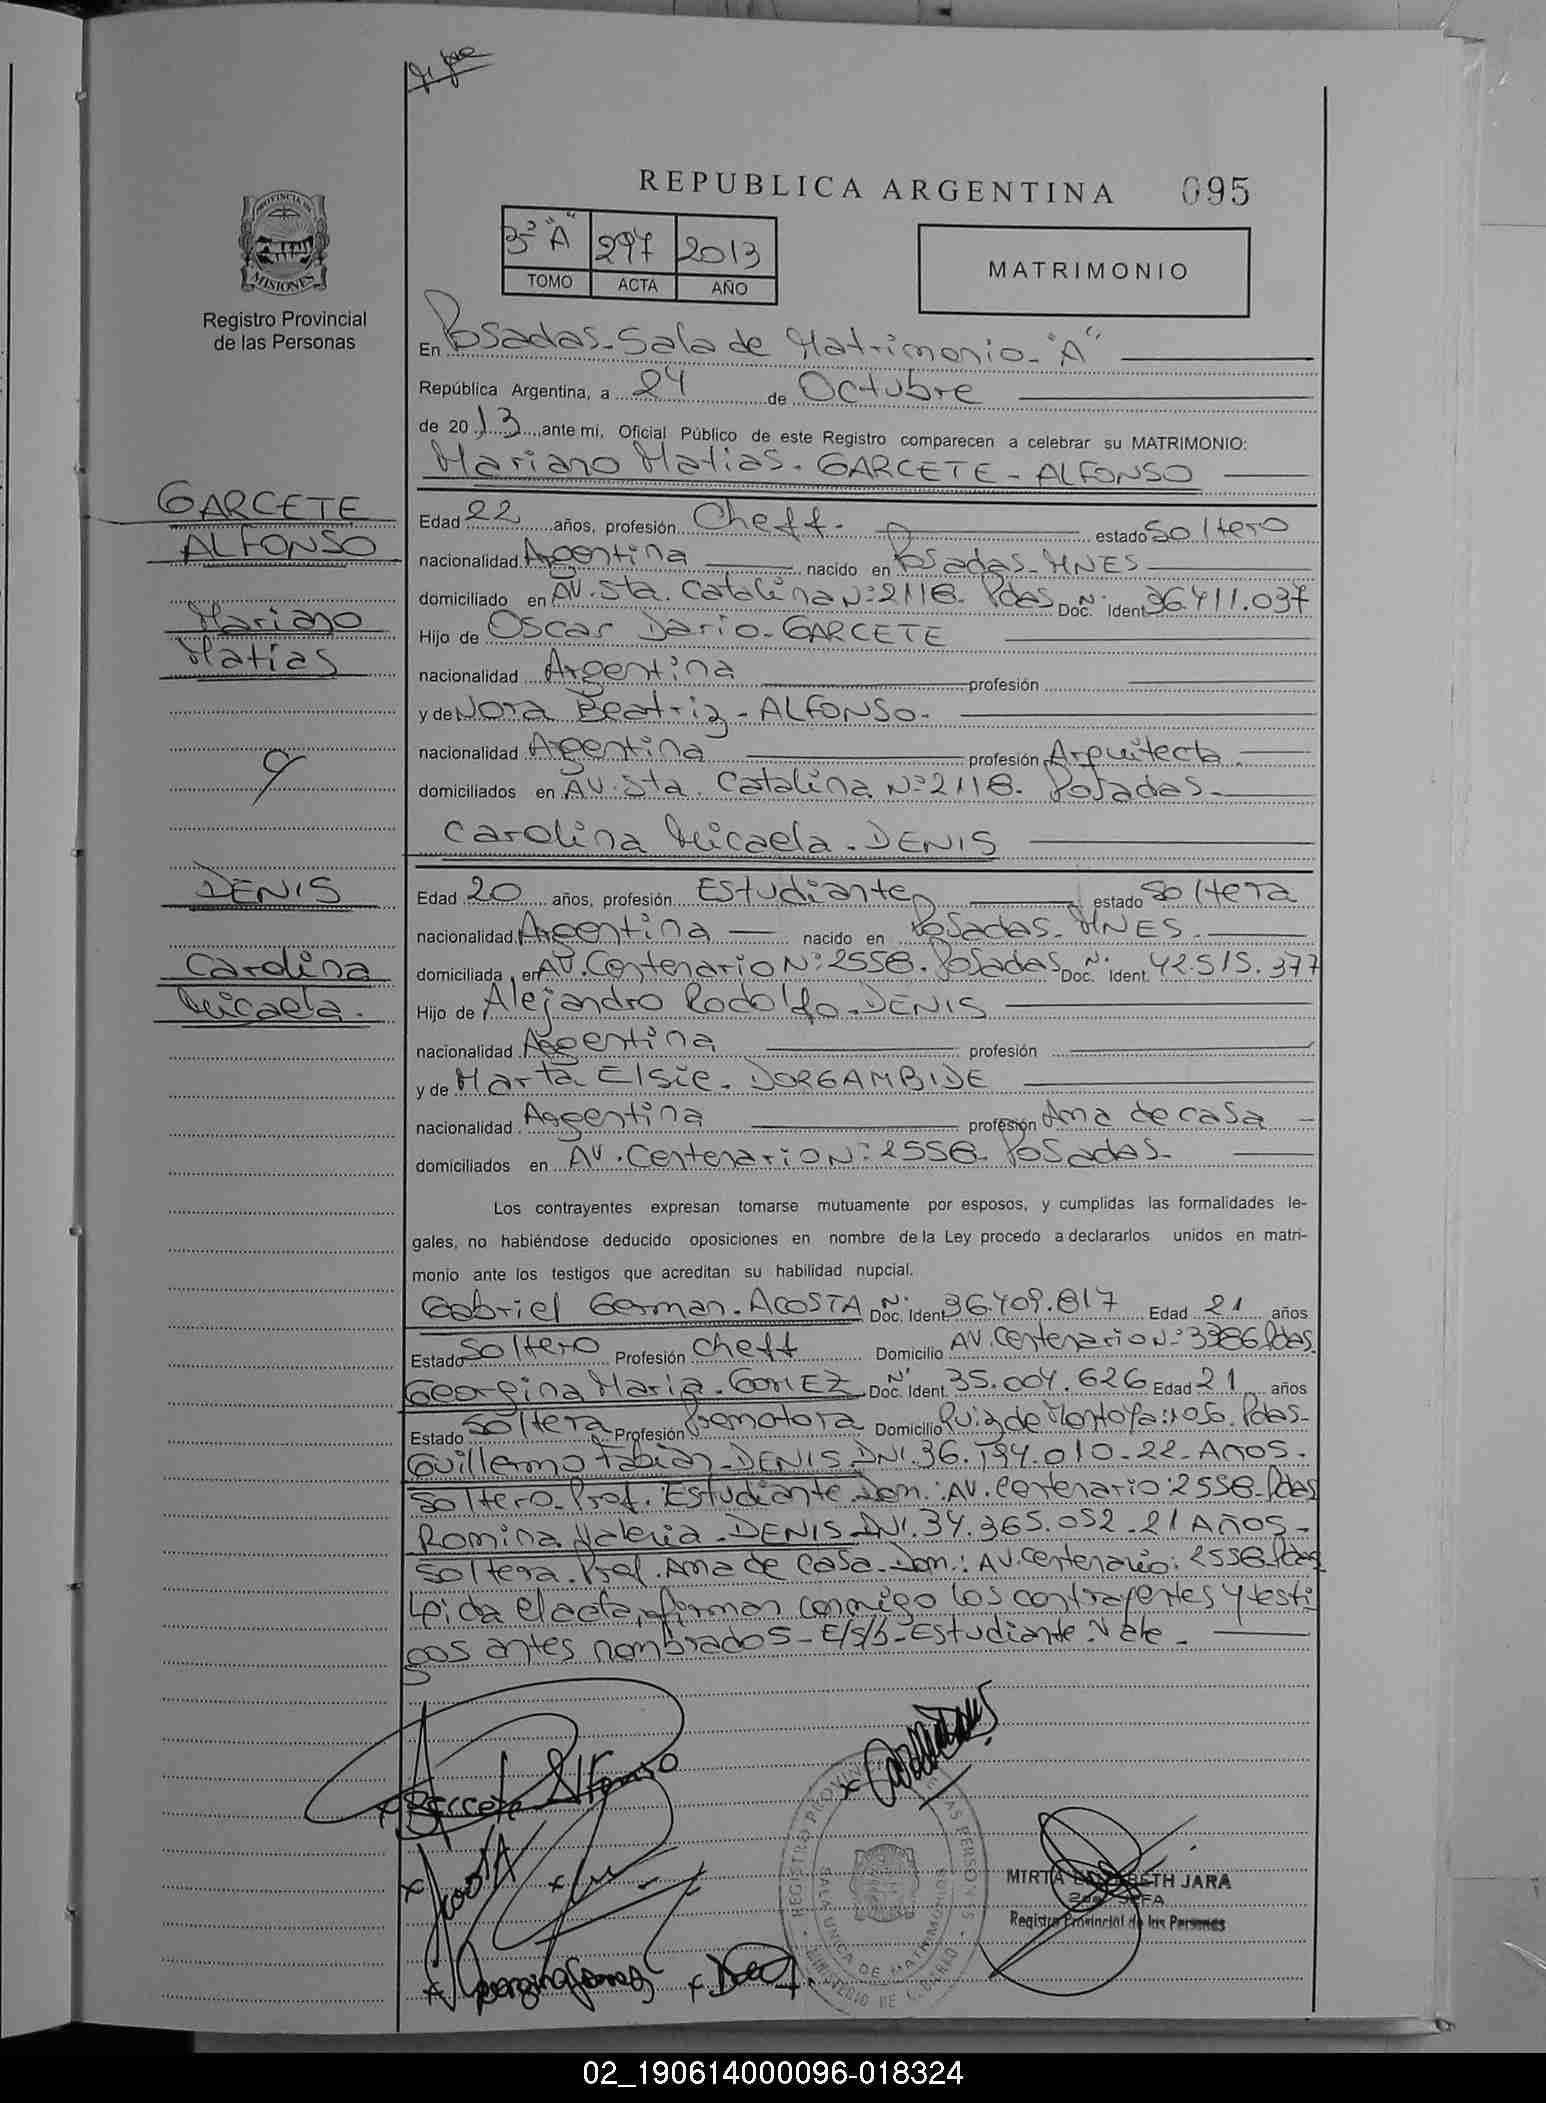 REPUBLICA ARGENTINA 095
PROVINCIA DE
MISIONES
Registro Provincial
de las Personas
3º "A" 297 2013
TOMO ACTA AÑO
MATRIMONIO
En Posadas-Sala de Matrimonio-"A"
República Argentina, a 24 de Octubre
de 2013 ante mi, Oficial Público de este Registro comparecen a celebrar su MATRIMONIO:
Mariano Matias-GARCETE-ALFONSO
GARCETE
ALFONSO
Mariano
Matias
Edad 22 años, profesión Cheff- estado Soltero
nacionalidad Argentina nacido en Posadas-MNES
domiciliado en AV. Sta. Catalina Nº:2118- Pdas Doc. Nº Ident 36.411.037
Hijo de Oscar Dario-GARCETE
nacionalidad Argentina profesión
y de Nora Beatriz-ALFONSO-
nacionalidad Argentina profesión Arquitecta
domiciliados en AV. Sta. Catalina Nº:2118- Posadas-
Carolina Micaela-DENIS
DENIS
Carolina
Micaela.
Edad 20 años, profesión Estudiante estado Soltera
nacionalidad Argentina nacido en Posadas-MNES-
domiciliada en AV. Centenario Nº:2558-Posadas Doc. Nº Ident. 42.515.377
Hijo de Alejandro Rodolfo-DENIS
nacionalidad Argentina profesión
y de Marta Elsie-DORGAMBIDE
nacionalidad Argentina profesión Ama de casa
domiciliados en AV. Centenario Nº:2558-Posadas-
Los contrayentes expresan tomarse mutuamente por esposos, y cumplidas las formalidades le-
gales, no habiéndose deducido oposiciones en nombre de la Ley procedo a declararlos unidos en matri-
monio ante los testigos que acreditan su habilidad nupcial.
Gabriel German-ACOSTA Doc. Nº Ident 36.409.817 Edad 21 años
Estado Soltero Profesión Cheff Domicilio AV. Centenario Nº:3386 Pdas.
Georgina Maria-GOMEZ Doc. Nº Ident. 35.004.626 Edad 21 años
Estado Soltera Profesión Promotora Domicilio Ruiz de Montoya:1056-Pdas-
Guillermo Fabian-DENIS DNI.36.194.010-22-Años-
Soltero-Prof. Estudiante-Dom.: AV. Centenario:2558-Pdas
Romina Valeria-DENIS-DNI.34.365.052-21 Años-
Soltera-Prof. Ama de Casa-Dom.: AV. Centenario: 2558-Pdas
Leida el acta, firman conmigo los contrayentes y testi
gos antes nombrados-E/s/b-Estudiante. Vale-
x Garcete Alfonso
x
x Acosta
x
x Georgina Gomez
x
REGISTRO PROVINCIAL DE LAS PERSONAS
SALA UNICA DE MATRIMONIOS
MINISTERIO DE GOBIERNO
MIRTA JARA
2da. JEFA
Registro Provincial de las Personas
02_190614000096-018324